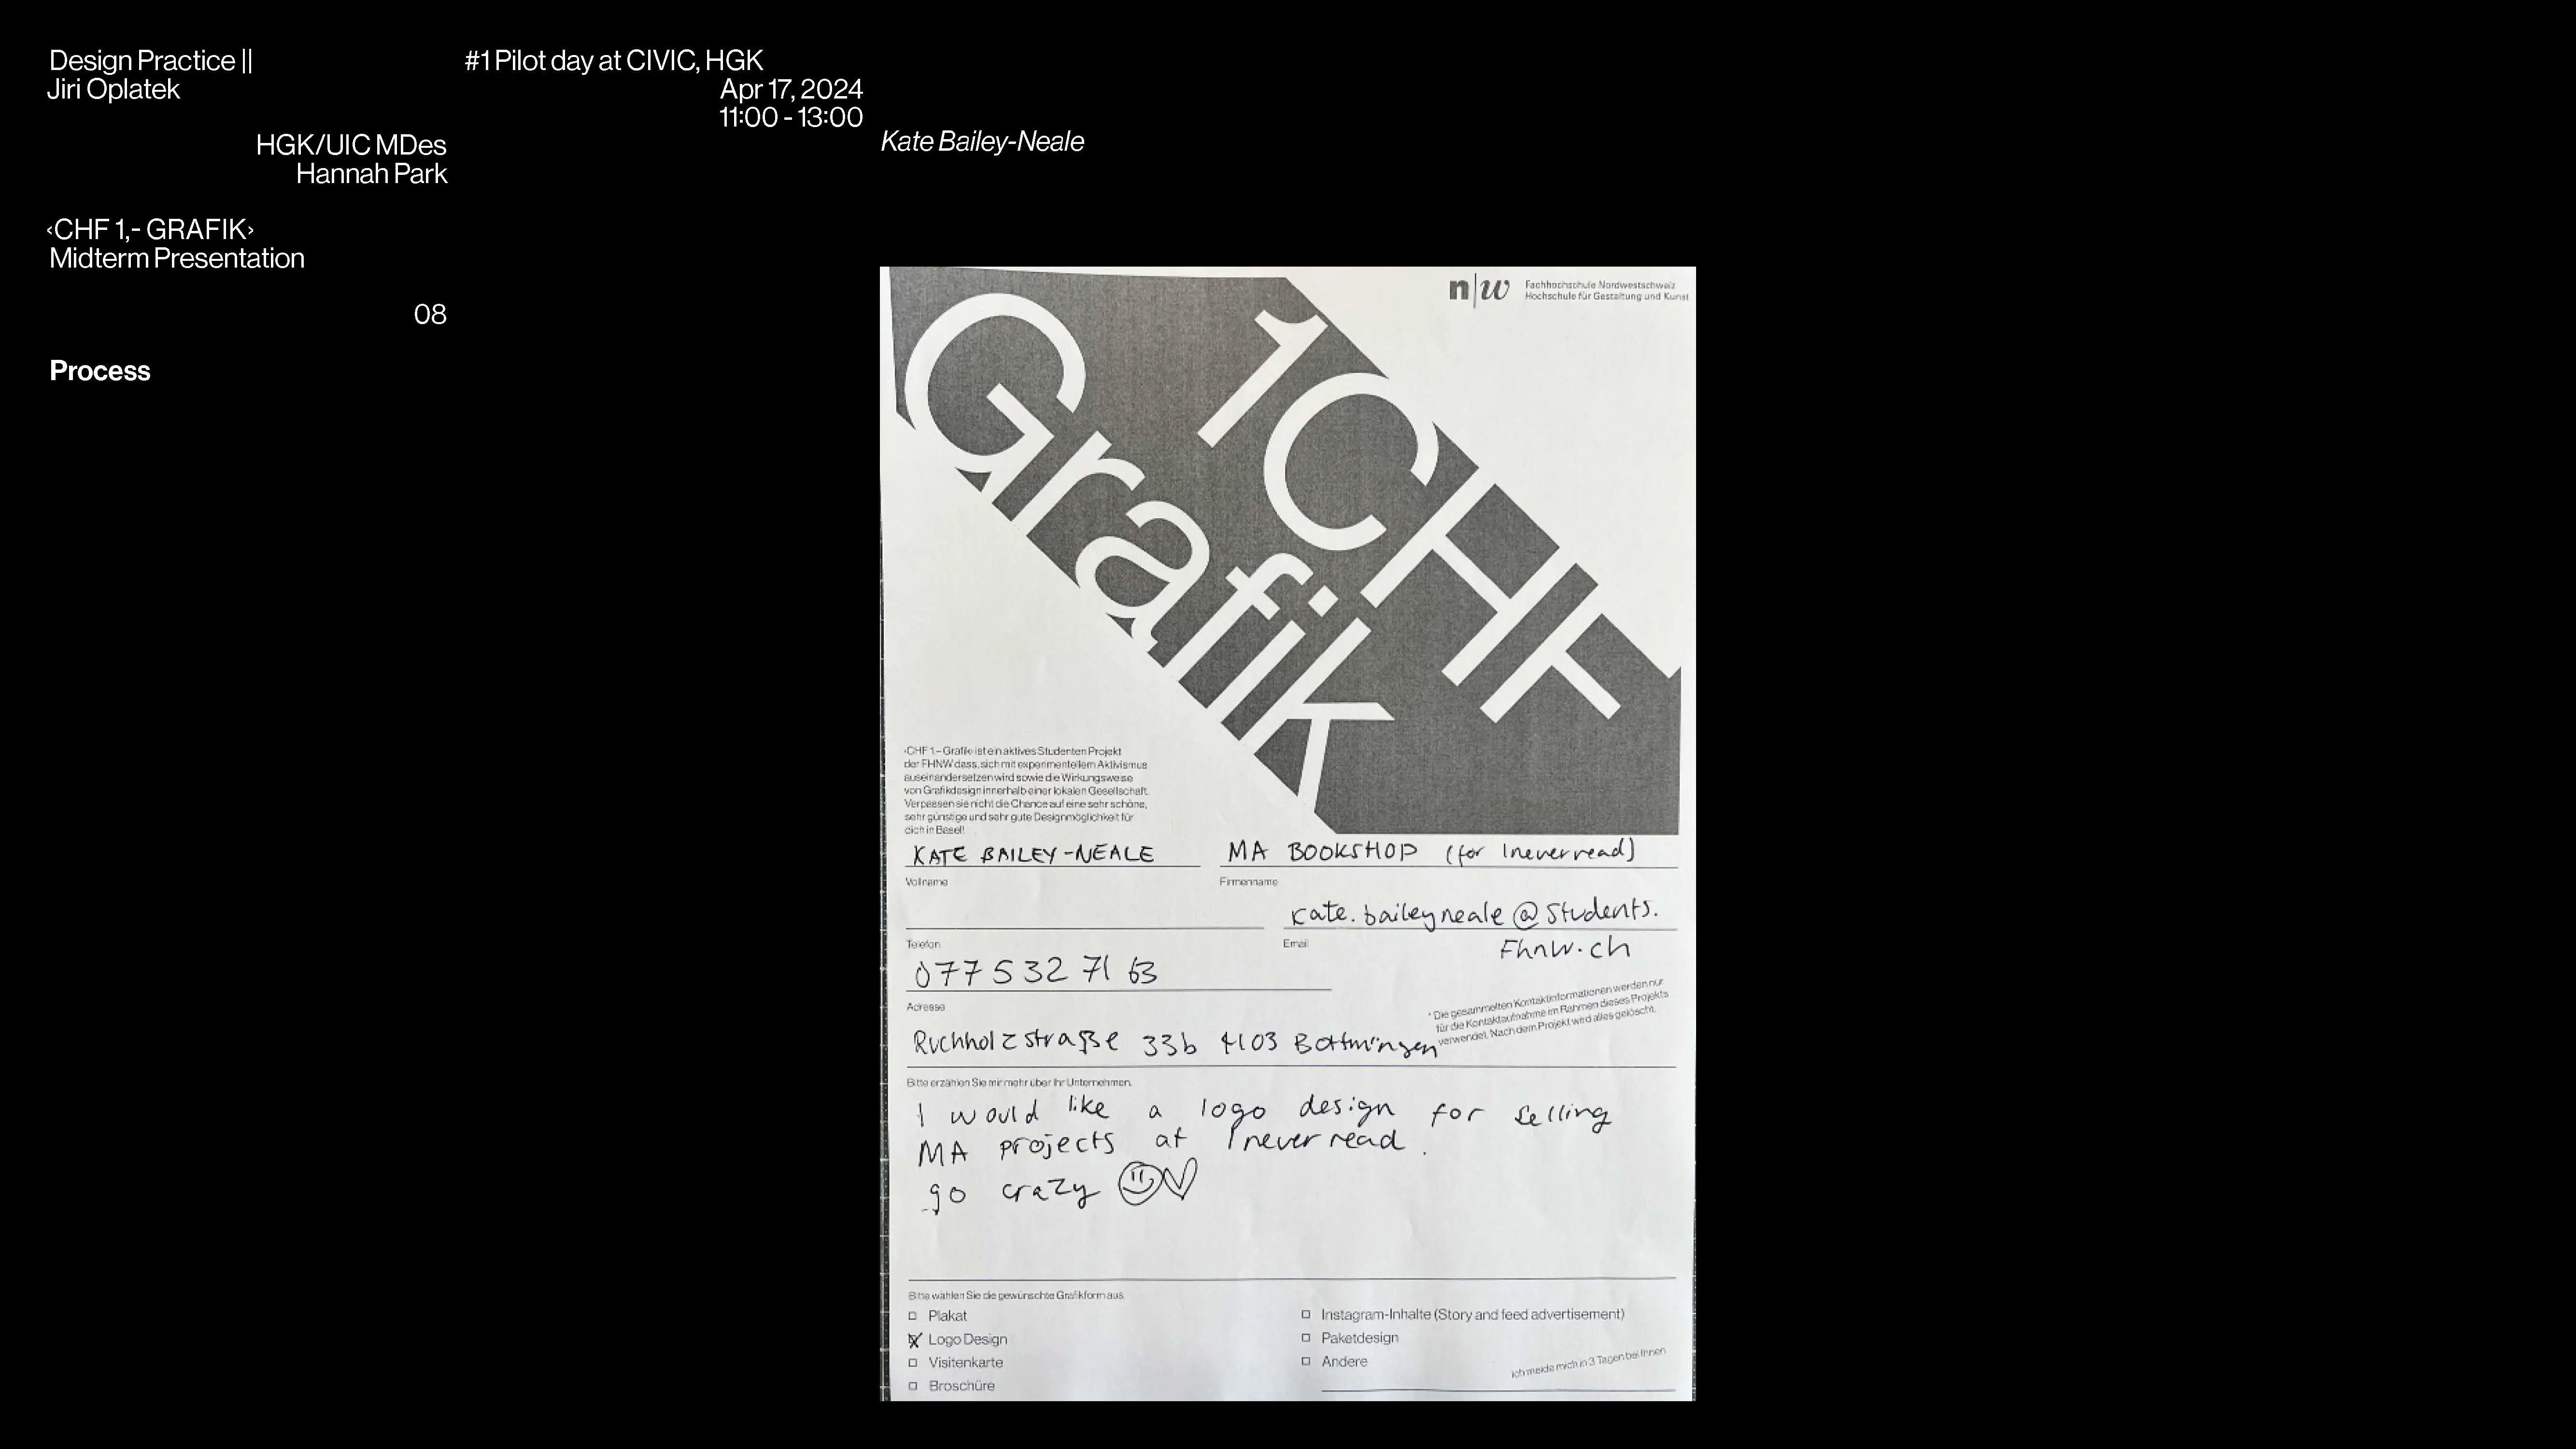 Design Practice ||
Jiri Oplatek
HGK/UIC MDes
Hannah Park
‹CHF 1,- GRAFIK›
Midterm Presentation
08
Process
#1 Pilot day at CIVIC, HGK
Apr 17, 2024
11:00 - 13:00
Kate Bailey-Neale
n|w
Fachhochschule Nordwestschweiz
Hochschule für Gestaltung und Kunst
1CHF
Grafik
‹CHF 1.– Grafik› ist ein aktives Studenten Projekt
der FHNW dass, sich mit experimentellem Aktivismus
auseinandersetzen wird sowie die Wirkungsweise
von Grafikdesign innerhalb einer lokalen Gesellschaft.
Verpassen sie nicht die Chance auf eine sehr schöne,
sehr günstige und sehr gute Designmöglichkeit für
dich in Basel!
KATE BAILEY-NEALE
Vollname
MA BOOKSHOP (for Ineverread)
Firmenname
Telefon
kate.baileyneale@students.
Email
Fhnw.ch
077 532 71 63
Adresse
* Die gesammelten Kontaktinformationen werden nur
für die Kontaktaufnahme im Rahmen dieses Projekts
verwendet. Nach dem Projekt wird alles gelöscht.
Ruchholzstraße 33b 4103 Bottmingen
Bitte erzählen Sie mir mehr über Ihr Unternehmen.
I would like a logo design for selling
MA projects at Ineverread.
go crazy
Bitte wählen Sie die gewünschte Grafikform aus.
Plakat
Logo Design
Visitenkarte
Broschüre
Instagram-Inhalte (Story and feed advertisement)
Paketdesign
Andere
Ich melde mich in 3 Tagen bei Ihnen